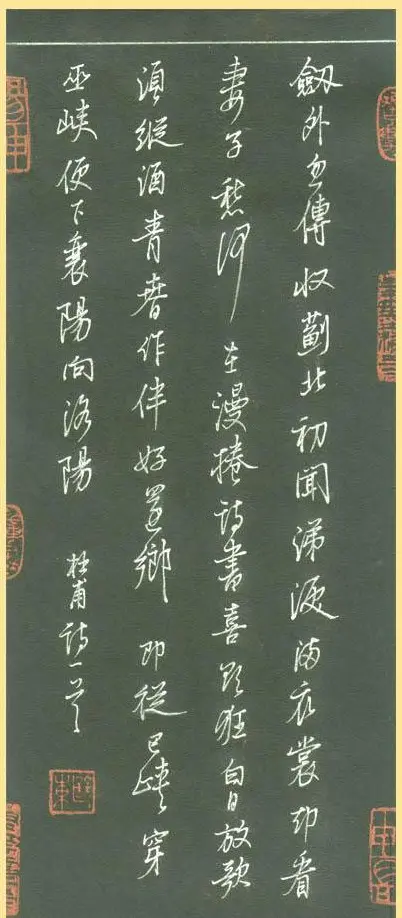 劔外忽傳收薊北初聞涕淚滿衣裳却看
妻子愁何在漫捲詩書喜欲狂白日放歌
須縱酒青春作伴好還鄉即從巴峽穿
巫峽便下襄陽向洛陽 杜甫詩一首